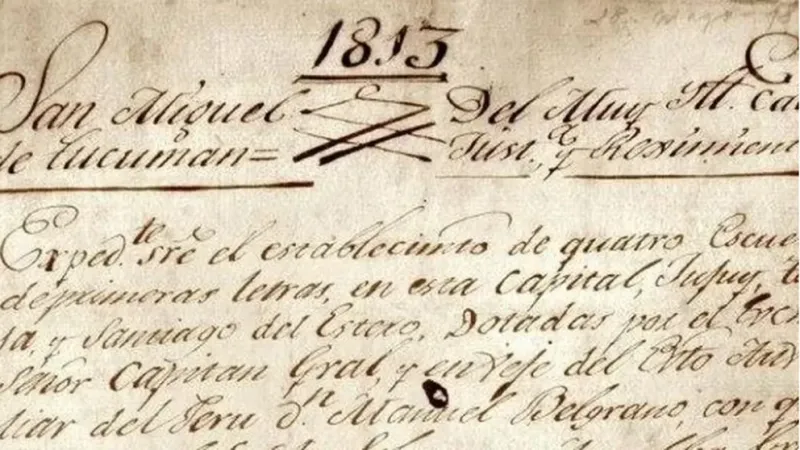 1813
San Miguel Del Muy Ill. Ca
de Tucuman= Just.ª y Reximien
Exped.te sre el establecimto de quatro Escue
de primeras letras, en esta Capital, Jujuy, t
ja, y Santiago del Estero, Dotadas por el Exc
Señor Capitan Gral, y en Xefe del Exto Aux
liar del Peru dn Manuel Belgrano, con q